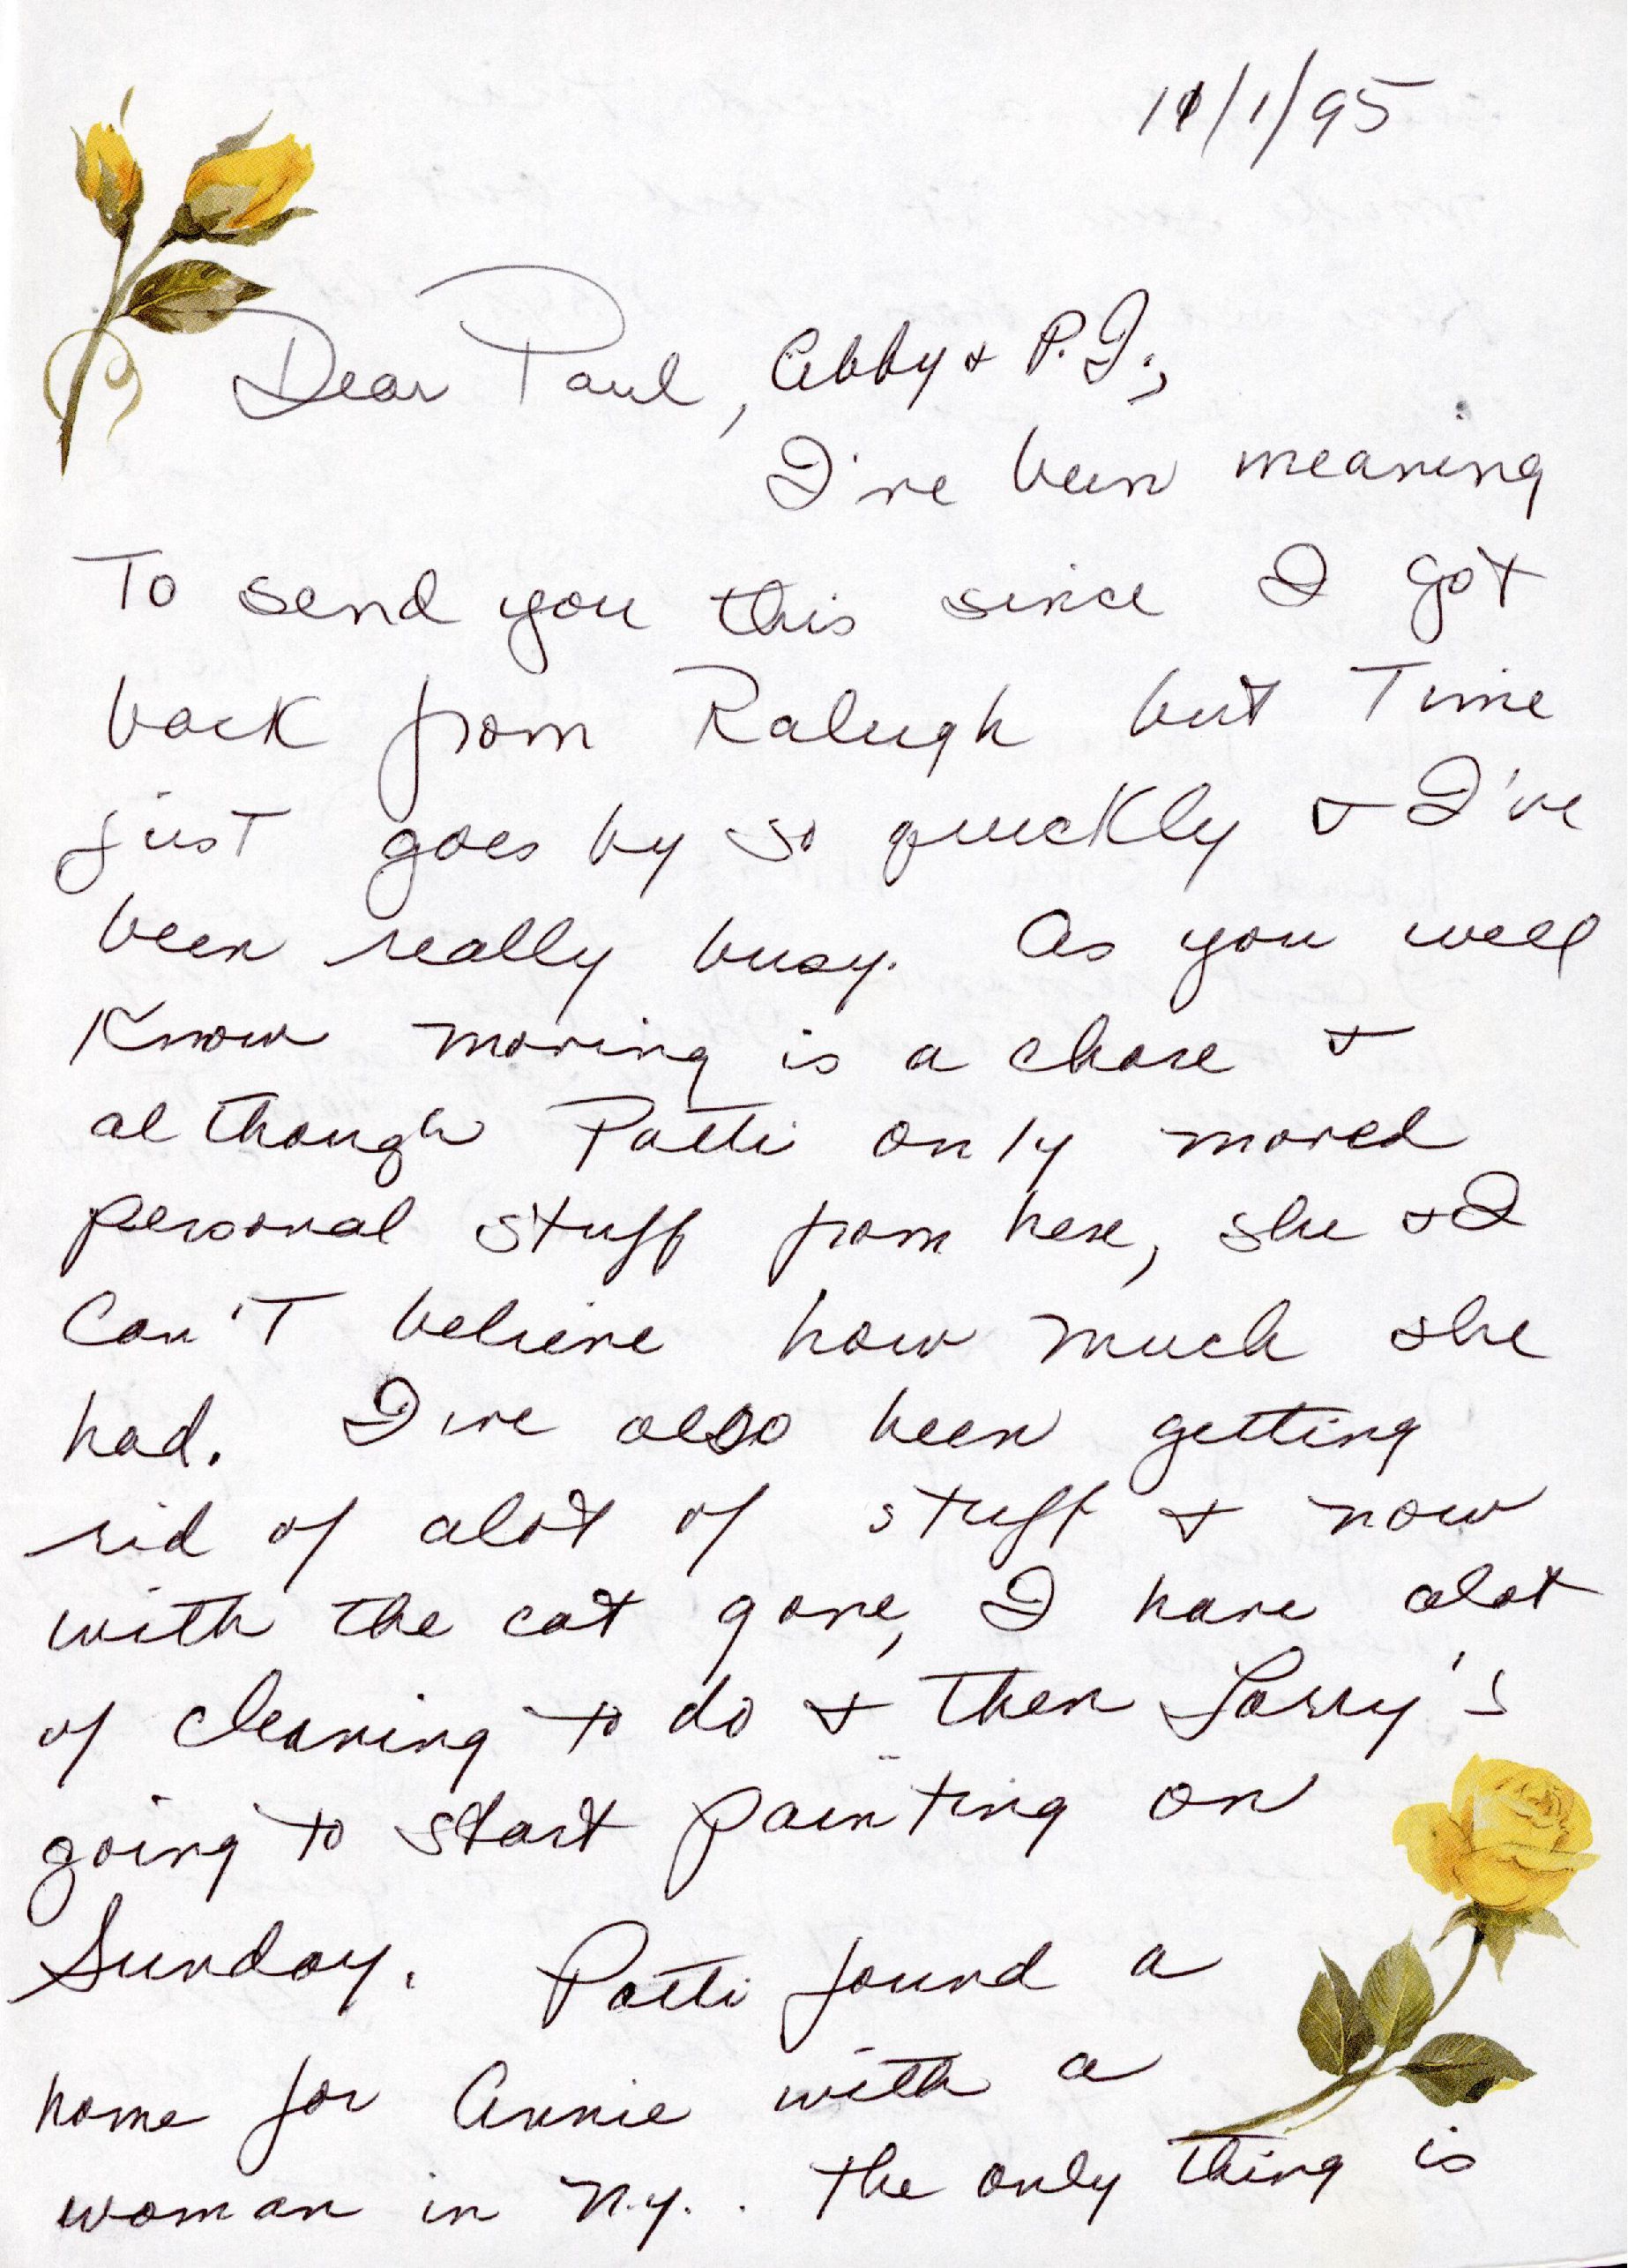 11/1/95
Dear Paul, Abby & P.J.,
I've been meaning
To send you this since I got
back from Raleigh but Time
just goes by so quickly & I've
been really busy. As you well
Know moving is a chore &
although Patti only moved
personal stuff from here, she & I
Can't believe how much she
had. I've also been getting
rid of alot of stuff & now
with the cat gone, I have alot
of cleaning to do & then Larry's
going to start painting on
Sunday. Patti found a
home for Annie with a
woman in N.Y.. The only thing is